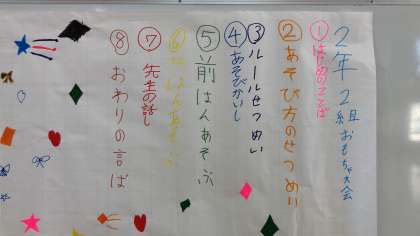 2年2組おもちゃ大会
①はじめのことば
②あそび方のせつめい
③ルールせつめい
④あそびかいし
⑤前はんあそぶ
⑥こうはんあそぶ
⑦先生の話し
⑧おわりの言ば